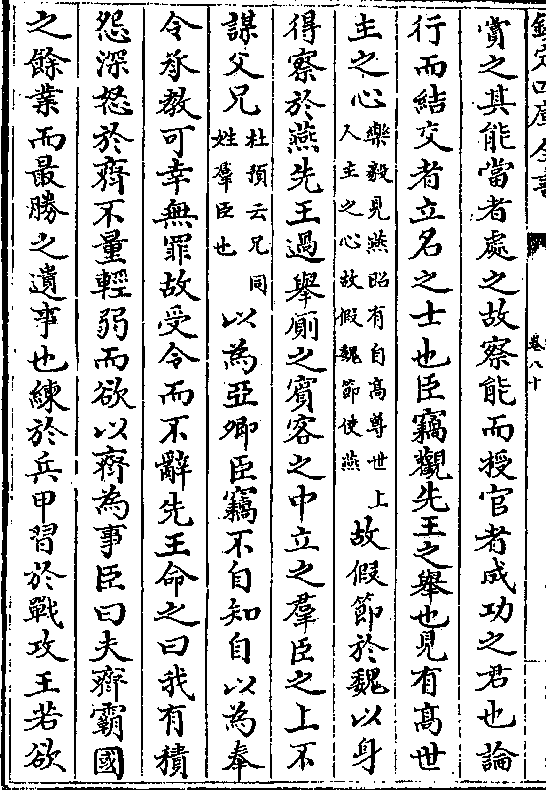 欽定四庫全書
卷八十
賞之其能當者處之故察能而授官者成功之君也論
行而結交者立名之士也臣竊觀先王之舉也見有髙世
主之心
樂毅見燕昭有自髙尊世上
人主之心故假魏節使燕
故假節於魏以身
得察於燕先王過舉厠之賓客之中立之羣臣之上不
謀父兄
杜預云兄同
姓羣臣也
以為亞卿臣竊不自知自以為奉
令承教可幸無罪故受令而不辭先王命之曰我有積
怨深怒於齊不量輕弱而欲以齊為事臣曰夫齊霸國
之餘業而最勝之遺事也練於兵甲習於戰攻王若欲